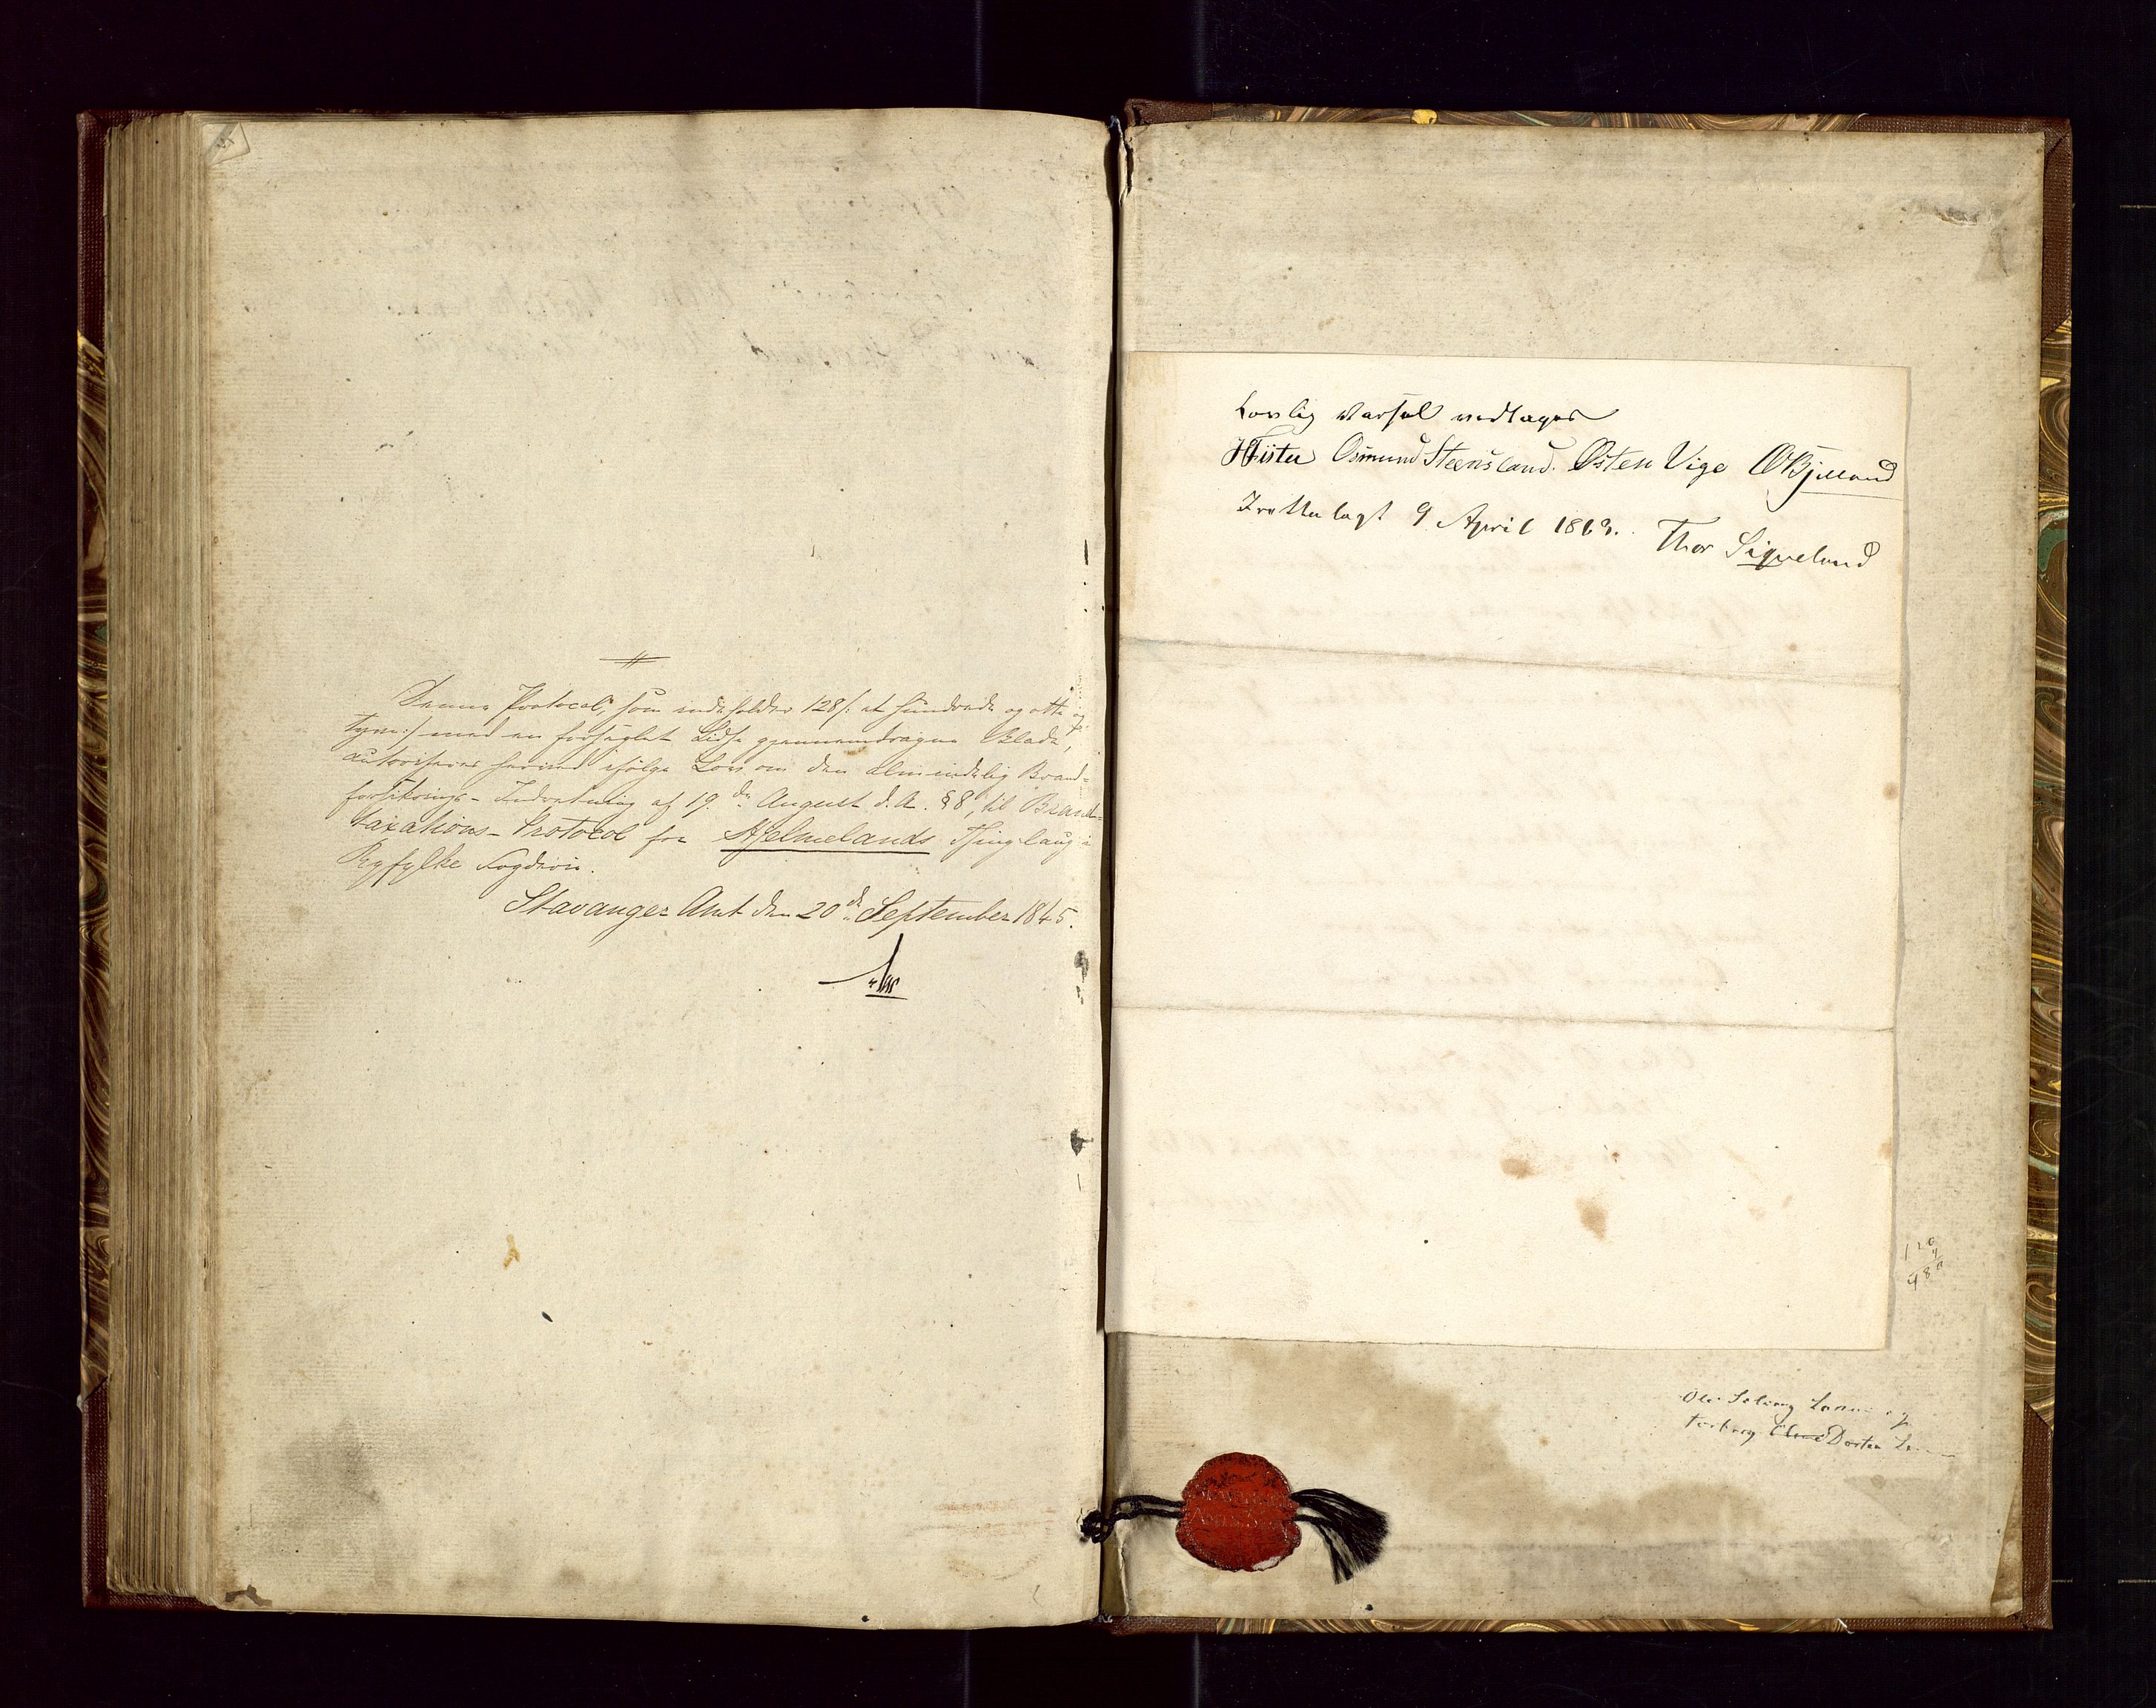 Denne Protocol, som indeholder 128/: et hundrede og otte og
tyve:/ med en forseglet Lidse gjennemdragne Blade,
autoriseres herved ifølge Lov om den almindelig Brand-
forsikrings-Indretning af 19de August d.A. §8, til Brand-
taxations-Protocol for Hjelmelands Thinglaug i
Ryfylke Fogderie.
Stavanger Amt den 20de September 1845.
Lovlig Varsel vedtages
Osmund Steensland. Østen Vige OBjelland
Fremlagt 9 April 1863. Thor Siqveland
120
4
480
Ole
Dorten